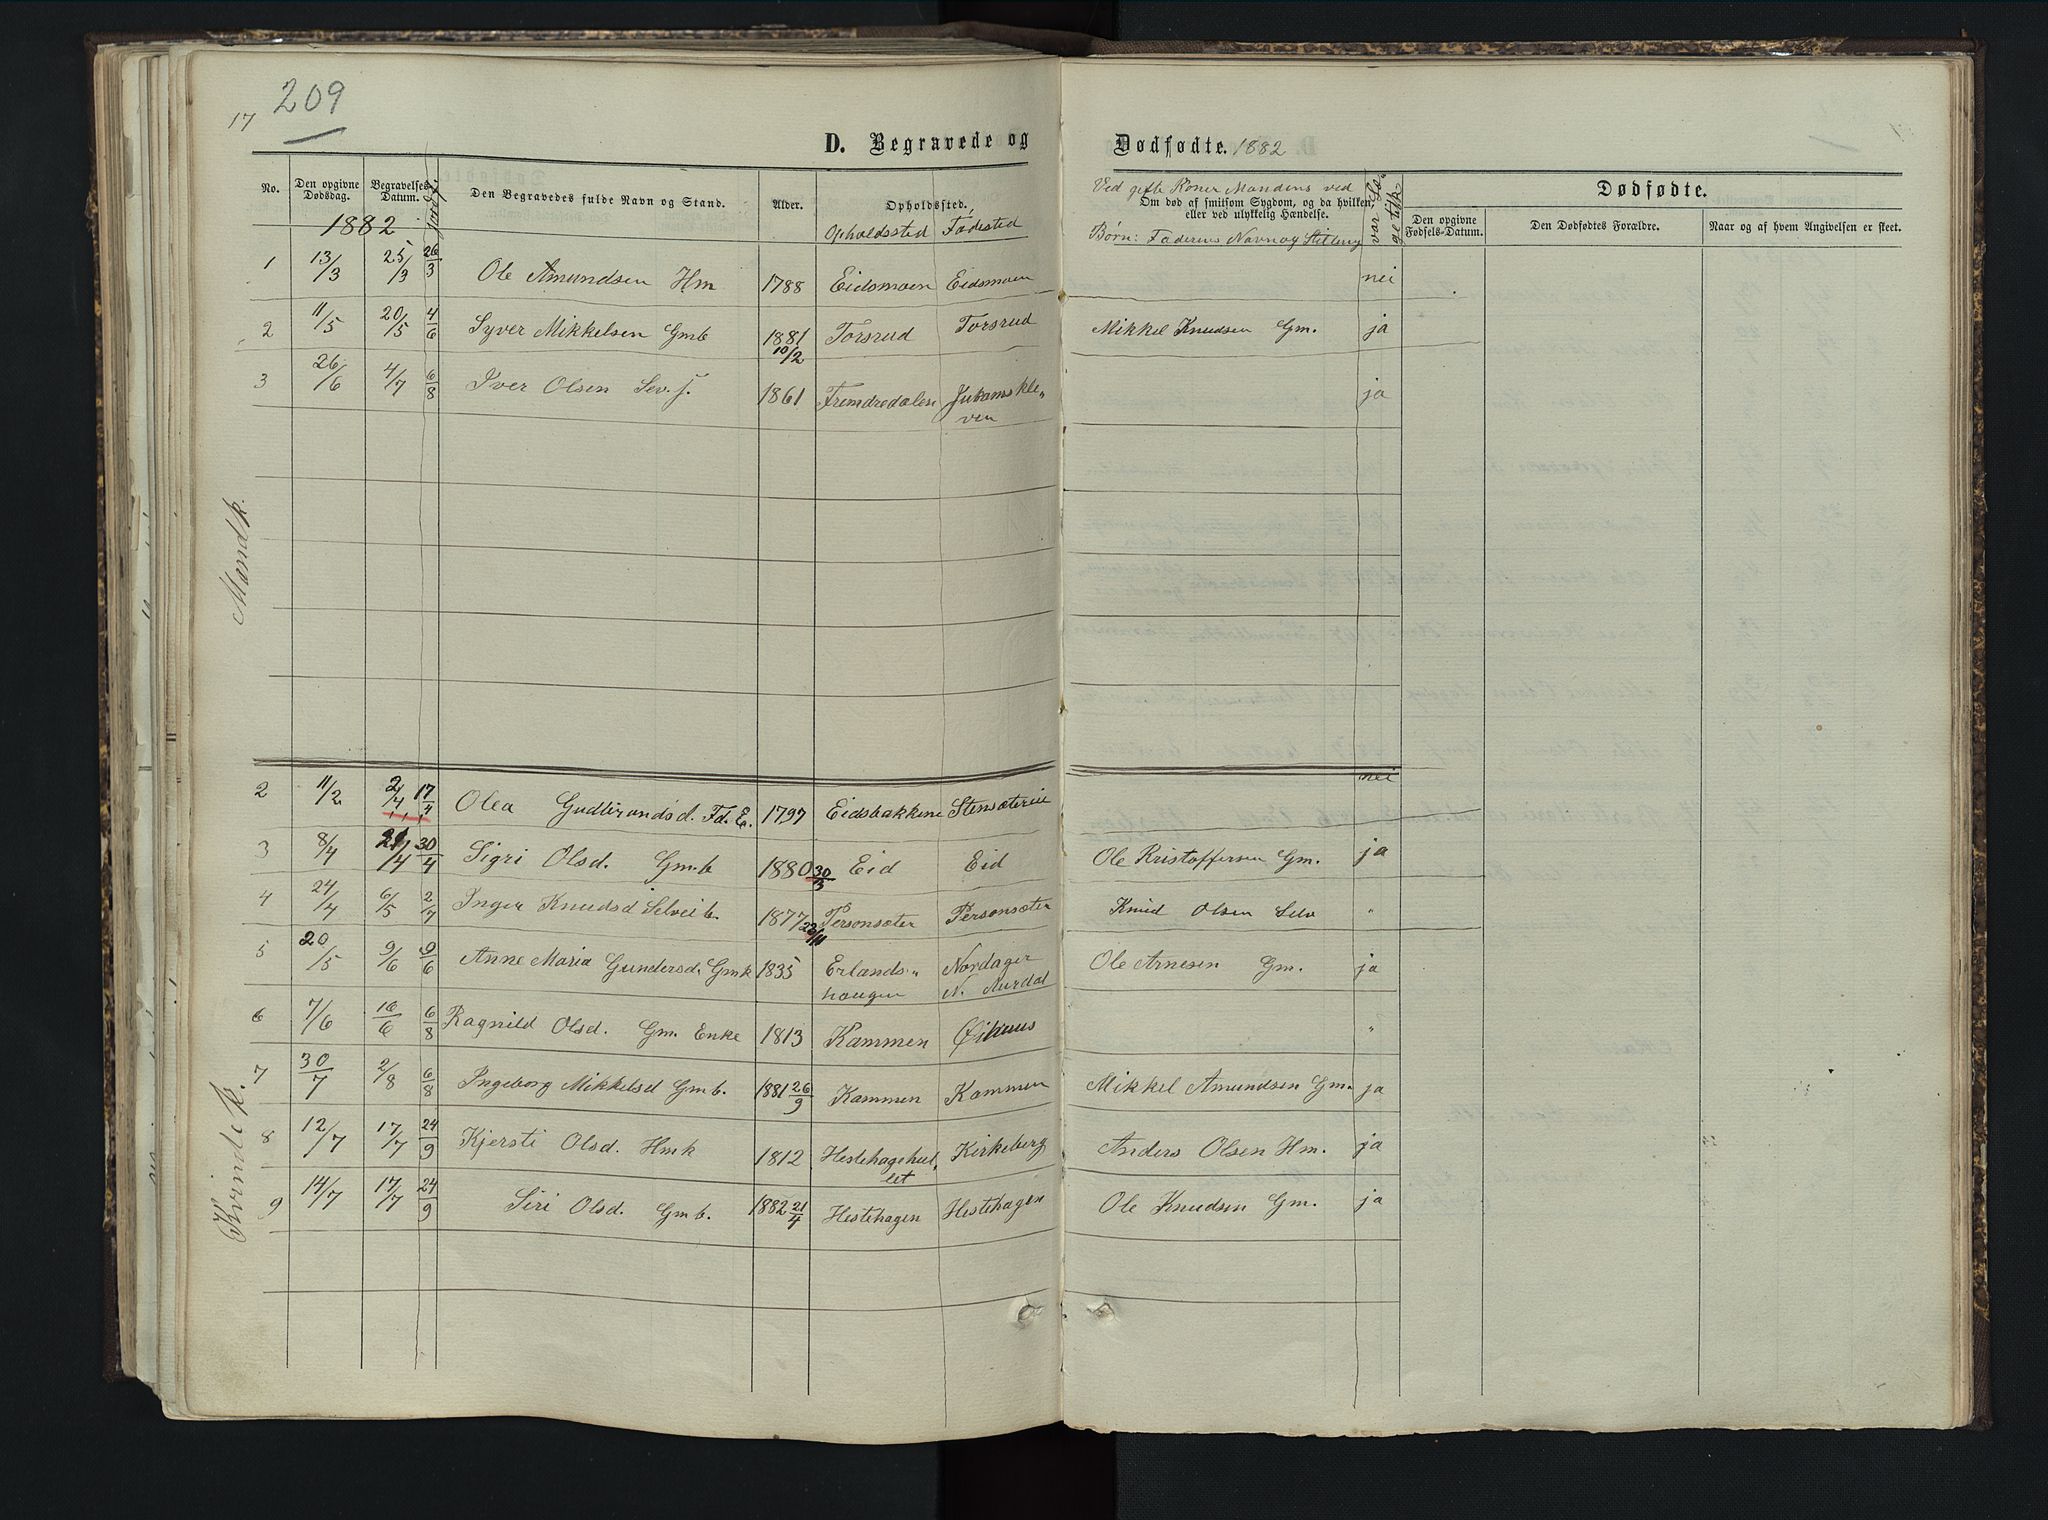 17 209
D. Begravede og Dødfødte. 1882
No. Den opgivne Dødsdag. Begravelses Datum. Jordf. Den Begravedes fulde Navn og Stand. Alder. Opholdssted. Om død af smitsom Sygdom, og da hvilken, eller ved ulykkelig Hændelse. Dødfødte.
1882 Opholdssted Fødested Ved gifte Koner Mandens ved Børn: Faderens Navn og Stilling var Læge tilk. Den opgivne Fødsels-Datum. Den Dødfødtes Forældre. Naar og af hvem Angivelsen er skeet.
Mandk.
1 13/3 25/3 26/3 Ole Amundsen Hm 1788 Eidsmoen Eidsmoen nei
2 11/5 20/5 4/6 Syver Mikkelsen Gmb 1881 10/2 Torsrud Torsrud Mikkel Knudsen Gm. ja
3 26/6 4/7 6/8 Iver Olsen 1861 Fremdredalen Jukamskle„
ven ja
Kvindek.
2 11/2 2/4 17/4 Olea Gudbrandsd. Fd. E. 1797 Eidsbakkene nei
3 8/4 21/4 30/4 Sigri Olsd. Gmb 1880 30/3 Eid Eid Ole Kristoffersen Gm. ja
4 24/4 6/5 2/7 Inger Knudsd Selveib. 1877 22/11 Personsæter Personsæter Knud Olsen Selv "
5 20/5 9/6 9/6 Anne Maria Gundersd. Gmk 1835 Erlands„ Nordager Ole Arnesen Gm. ja
haugen N. Aurdal
6 7/6 16/6 6/8 Ragnild Olsd. Gm. Enke 1813 Kammen Øihuus "
7 30/7 2/8 6/8 Ingeborg Mikkelsd Gmb. 1881 26/9 Kammen Kammen Mikkel Amundsen Gm. ja
8 12/7 17/7 24/9 Kjersti Olsd. Hmk 1812 Hestehagehul„ Kirkeberg Anders Olsen Hm. ja
let
9 14/7 17/7 24/9 Siri Olsd. Gmb. 1882 21/4 Hestehagen Hestehagen Ole Knudsen Gm. ja